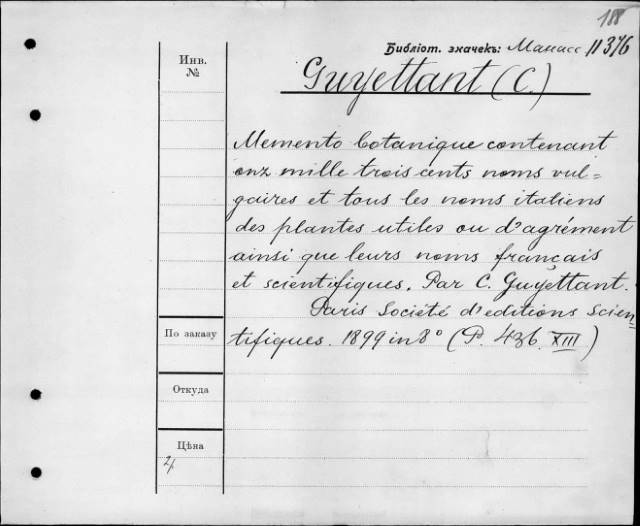 188
Библіот. значекъ: Манасс 11376
Инв.
№
Guyettant (C.)
Memento botanique contenant
onz mille trois cents noms vul=
gaires et tous les noms italiens
des plantes utiles ou d'agrément
ainsi que leurs noms français
et scientifiques. Par C. Guyettant.
Paris Société d'editions Scien-
tifiques. 1899 in 8° (P. 436. XIII)
По заказу
Откуда
Цѣна